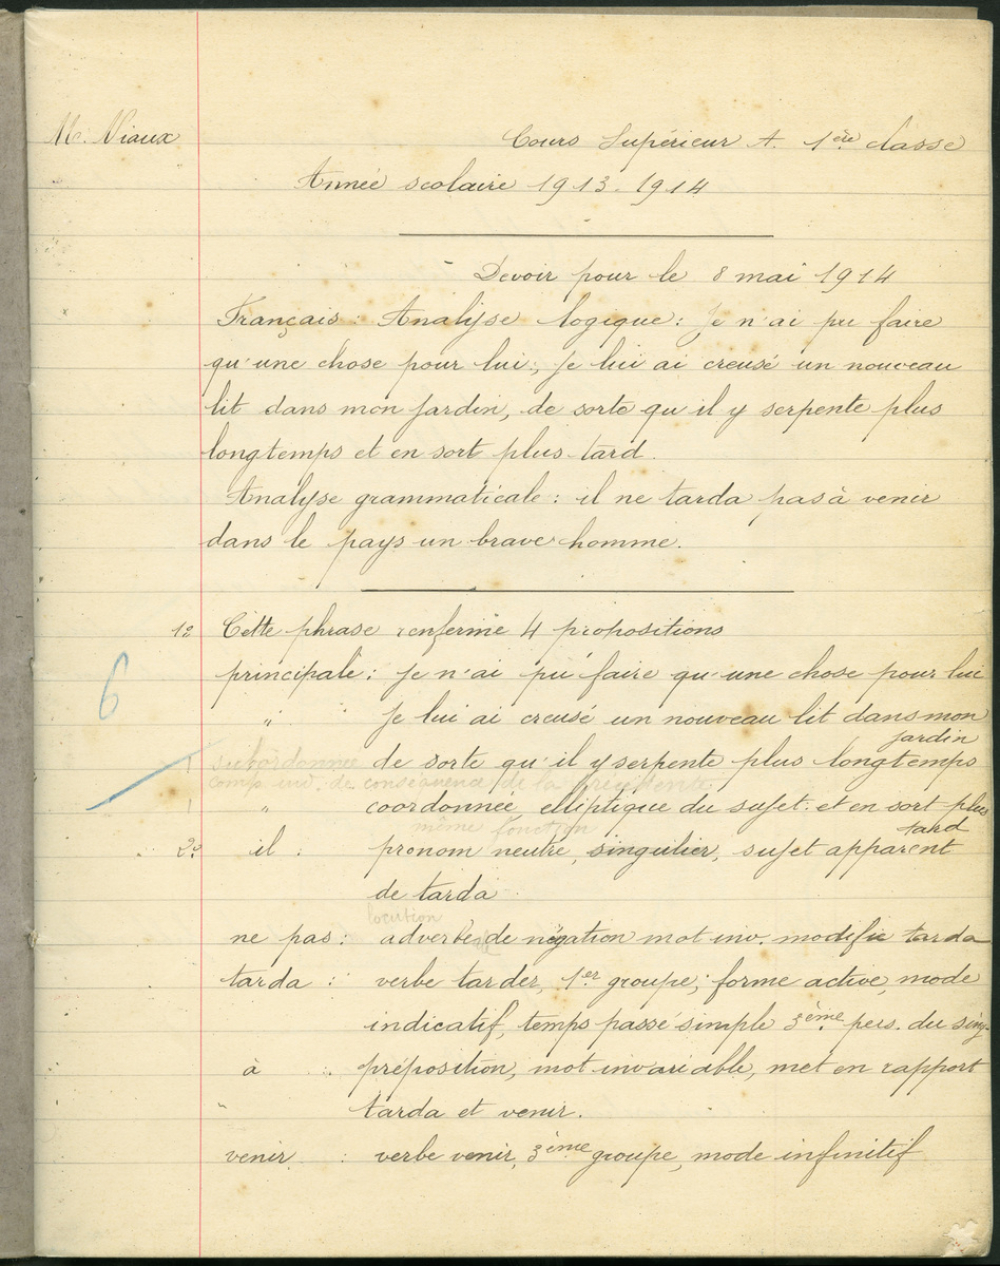 M. Viaux
Cours Supérieur A. 1ère classe
Année scolaire 1913-1914
Devoir pour le 8 mai 1914
Français : Analyse logique : Je n'ai pu faire
qu'une chose pour lui ; Je lui ai creusé un nouveau
lit dans mon jardin, de sorte qu'il y serpente plus
longtemps et en sort plus tard.
Analyse grammaticale : il ne tarda pas à venir
dans le pays un brave homme.
1º Cette phrase renferme 4 propositions
6
principale : Je n'ai pu faire qu'une chose pour lui
" Je lui ai creusé un nouveau lit dans mon
jardin
1 subordonnée de sorte qu'il y serpente plus longtemps
comp. ind. de conséquence de la précédente
1 " coordonnée elliptique du sujet : et en sort plus
tard
même fonction
2º il : pronom neutre, singulier, sujet apparent
de tarda
locution
ne pas : adverbe de négation mot inv. modifie tarda
tarda : verbe tarder, 1er groupe, forme active, mode
indicatif, temps passé simple 3ème pers. du sing.
à : préposition, mot invariable, met en rapport
tarda et venir.
venir : verbe venir, 3ème groupe, mode infinitif